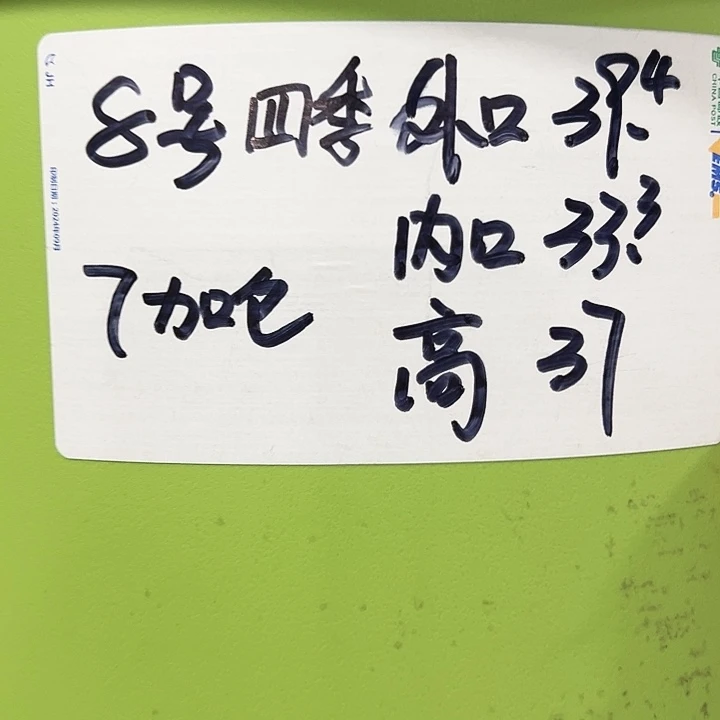 8号 四季 外口 39.4
内口 33.3
7加仑 高 37
JH
CHINA POST
EMS